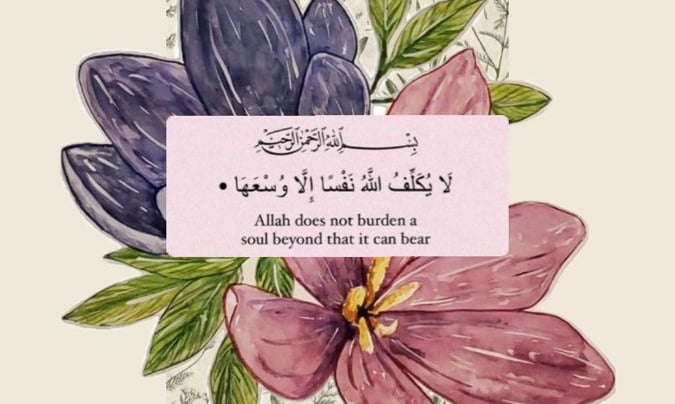 بِسْمِ اللَّهِ الرَّحْمَٰنِ الرَّحِيمِ
لَا يُكَلِّفُ اللَّهُ نَفْسًا إِلَّا وُسْعَهَا •
Allah does not burden a
soul beyond that it can bear